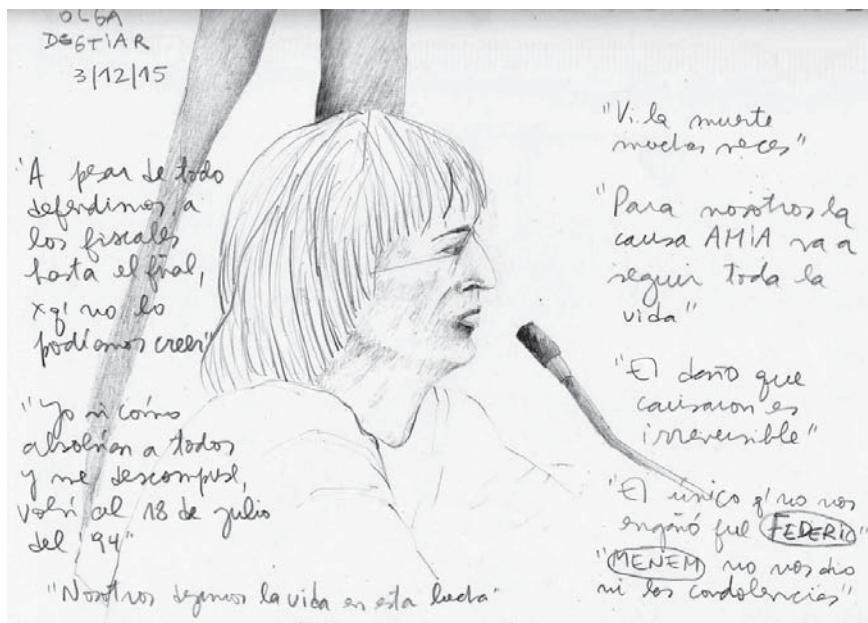 OLGA
DEGTIAR
3/12/15
"A pesar de todo
defendimos a
los fiscales
hasta el final,
xq' no lo
podíamos creer"
"Yo vi cómo
absolvían a todos
y me descompuse,
volví al 18 de julio
del '94"
"Nosotros dejamos la vida en esta lucha"
"Vi la muerte
muchas veces"
"Para nosotros la
causa AMIA va a
seguir toda la
vida"
"El daño que
causaron es
irreversible"
"El único q' no nos
engañó fue FEDERICO"
"MENEM no nos dio
ni las condolencias"